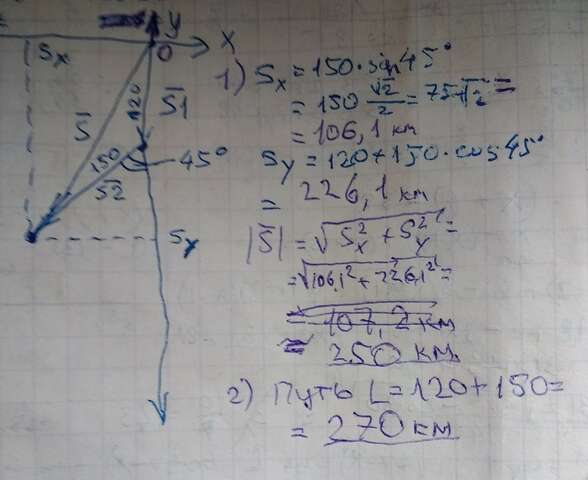 y
x
Sx
O
120
S̅1
S̅
150
S̅2
45°
Sy
1) Sx = 150·sin45°
= 150 √2/2 = 75√2 =
= 106,1 км
Sy = 120 + 150·cos45°
= 226,1 км
|S̅| = √Sx² + Sy² =
= √106,1² + 226,1² =
= 107,2 км
= 250 км.
2) Путь L = 120 + 150 =
= 270 км